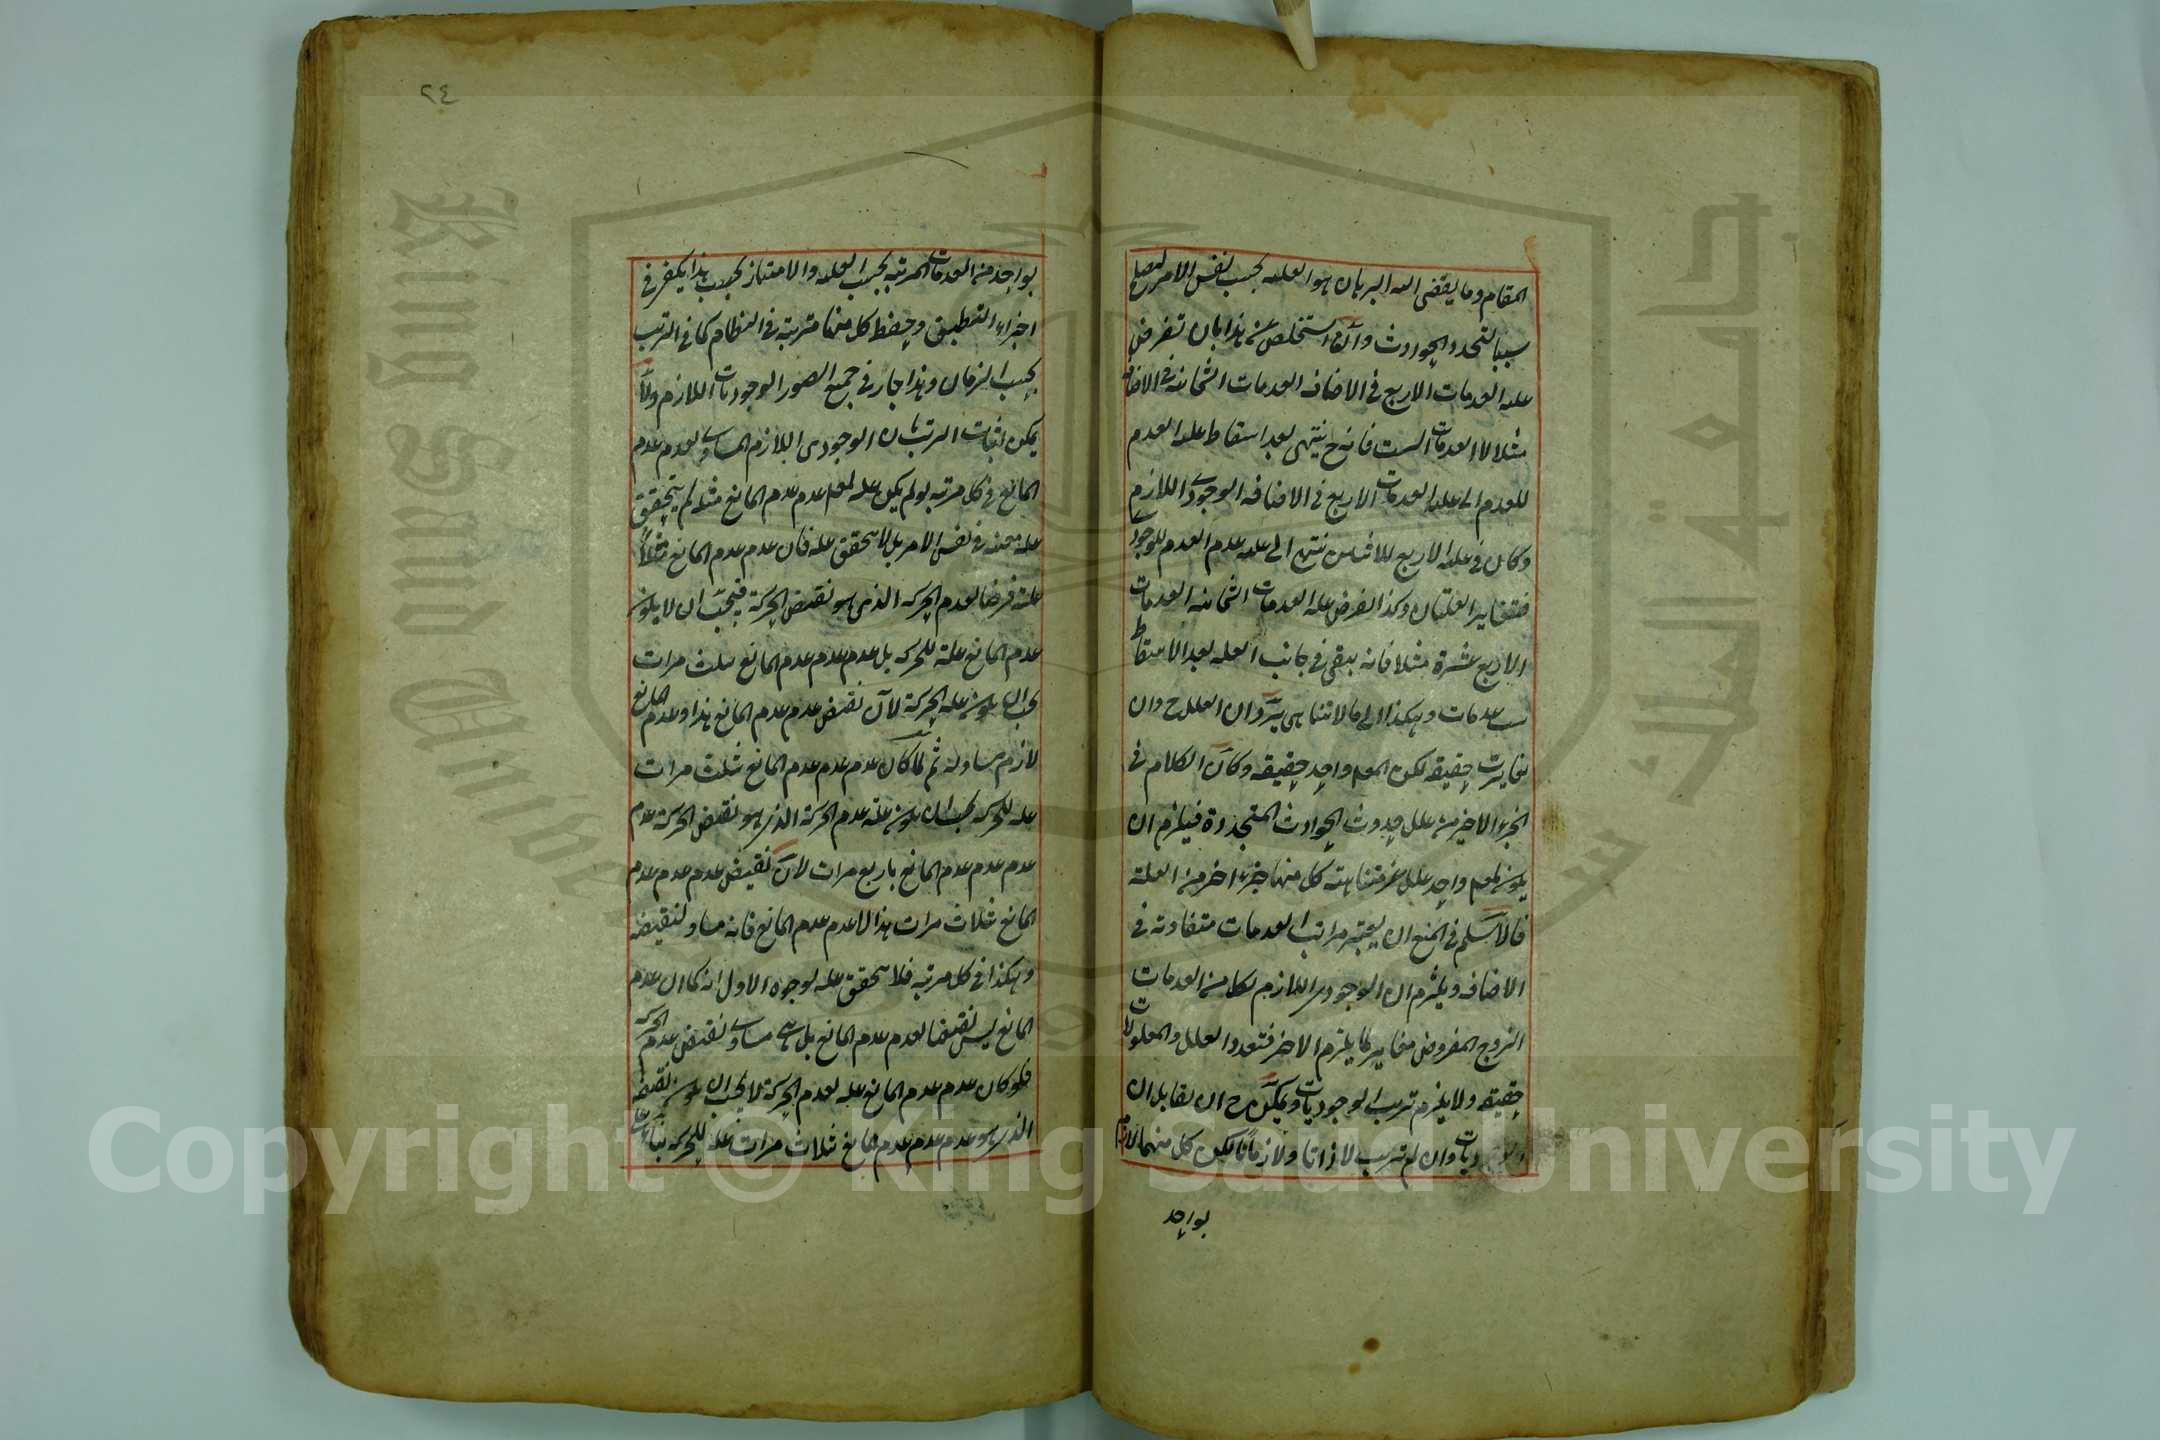 المقام وما يقتضى اليه البرهان هو العليه بحسب نفس الامر ليصلح
سببا لتجدد الحوادث وآنا استخلص عن هذا بان تفرض
علية العدمات الاربع فى الاضافه العدمات الثمانية فى الاضافه
مثلا لا العدمات الست فانه ح ينتهى بعد اسقاط علية العدم
للعدم الى علية العدمات الاربع فى الاضافه الوجودى اللازم
وكان فى علية الاربع للاثنين تنتهى الى علية عدم العدم للوجود
فتغاير العلتان وكذا نفرض علية العدمات الثمانية العدمات
الاربع عشرة مثلا فانه يبقى فى جانب العله بعد الاسقاط
ست عدمات وهكذا الى ما لا تتناهى يرد ان العلل ح وان
تغايرت حقيقه لكن المعلول واحد حقيقه وكان الكلام فى
الجزء الاخير من علل حدوث الحوادث المتجددة فيلزم ان
يكون لمعلول واحد علل غير متناهيه كل منها جزء اخر من العلة
فالاسلم فى المنع ان يعتبر مراتب العدمات متفاوته فى
الاضافه ويلتزم ان الوجودى اللازم لكل من العدمات
الزوج المفروض مغاير لما يلزم الاخر فتعدد العلل والمعلولات
حقيقه ولا يلزم ترتب الوجوديات ويمكن ح ان يقابل ان
الوجوديات وان لم تترتب لا ذاتا ولا زمانا لكن كل منهما لازم
بواحد
٢٤
بواحد من العدمات المرتبه بحسب العليه والامتياز بحسب هذا يكفى فى
اجراء التطبيق ويحفظ كل منها مرتبة فى النظام كما فى الترتب
بحسب الزمان وهذا جار فى جميع الصور الوجوديات اللازم ولا
يمكن اثبات الترتب بان الوجودى اللازم المساوى لعدم عدم
المانع فى كل مرتبه لو لم يكن علة لعدم عدم عدم المانع مثلا لم يتحقق
علة معينه فى نفس الامر بل لا تحقق علة فان عدم عدم المانع مثلا
علة فرضا لعدم الحركه الذى هو نقيض الحركة فيجب ان لا يكون
عدم المانع علة للحركه بل عدم عدم عدم المانع ثلث مرات
يجب ان يكون علة الحركة لان نقيض عدم عدم المانع هذا وعدم المانع
لازم مساو له ثم لما كان عدم عدم عدم المانع ثلث مرات
علة للحركه يجب ان يكون علة عدم الحركة الذى هو نقيض الحركة عدم
عدم عدم عدم المانع باربع مرات لان نقيض عدم عدم عدم
المانع ثلاث مرات هذا لا عدم عدم المانع فانه مساو لنقيضه
وهكذا فى كل مرتبه فلا تحقق علة لوجوه الاول انه كما ان عدم
المانع ليس نقيضا لعدم عدم المانع بل هى مساوى نقيض عدم الحركه
فلو كان عدم عدم المانع علة لعدم الحركة لا يجب ان يكون نقيضه
الذى هو عدم عدم عدم المانع ثلاث مرات علة للحركه بناء على
Copyright © King Saud University
King Saud University
جامعة الملك سعود